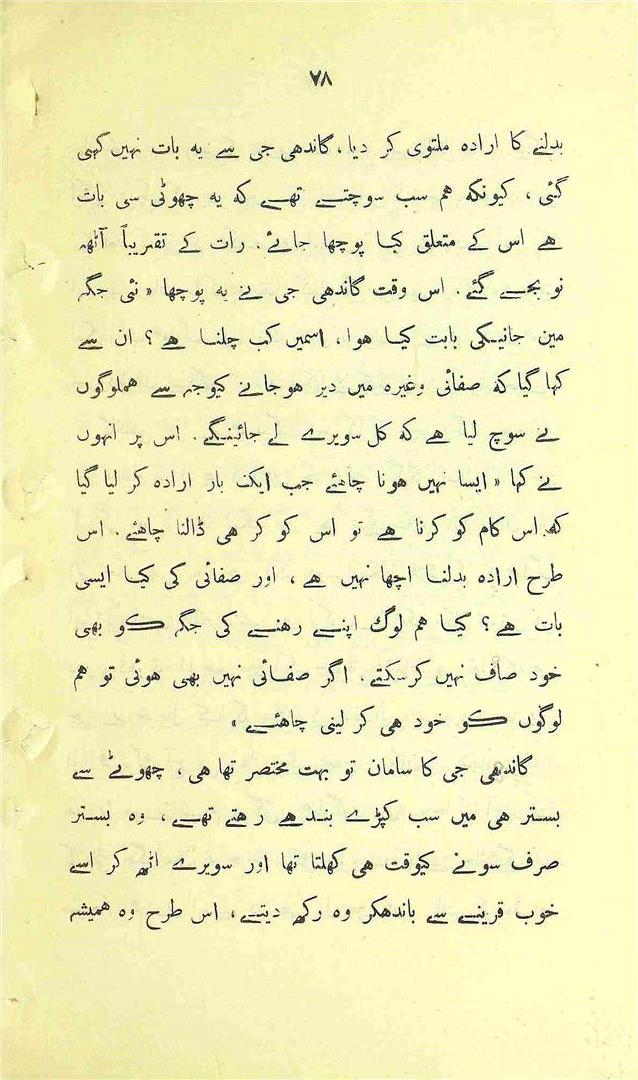 ۷۸
بدلنے کا ارادہ ملتوی کر دیا، گاندھی جی سے یہ بات نہیں کہی
گئی ، کیونکہ ہم سب سوچتے تھے کہ یہ چھوٹی سی بات
ہے اس کے متعلق کیا پوچھا جائے. رات کے تقریباً آٹھ
نو بجے گئے. اس وقت گاندھی جی نے یہ پوچھا « نئی جگہ
مین جانیکی بابت کیا ہوا، اسمیں کب چلنا ہے؟ ان سے
کہا گیا کہ صفائی وغیرہ میں دیر ہوجانے کیوجہ سے ہملوگوں
نے سوچ لیا ہے کہ کل سویرے لے جائینگے. اس پر انہوں
نے کہا « ایسا نہیں ہونا چاہئے جب ایک بار ارادہ کر لیا گیا
کہ اس کام کو کرنا ہے تو اس کو کر ہی ڈالنا چاہئے. اس
طرح ارادہ بدلنا اچھا نہیں ہے ، اور صفائی کی کیا ایسی
بات ہے؟ کیا ہم لوگ اپنے رہنے کی جگہ کو بھی
خود صاف نہیں کرسکتے. اگر صفائی نہیں بھی ہوئی تو ہم
لوگوں کو خود ہی کر لینی چاہئے »
گاندھی جی کا سامان تو بہت مختصر تھا ہی ، چھوٹے سے
بستر ہی میں سب کپڑے بندھے رہتے تھے ، وہ بستر
صرف سونے کیوقت ہی کھلتا تھا اور سویرے اٹھ کر اسے
خوب قرینے سے باندھکر وہ رکھ دیتے ، اس طرح وہ ہمیشہ